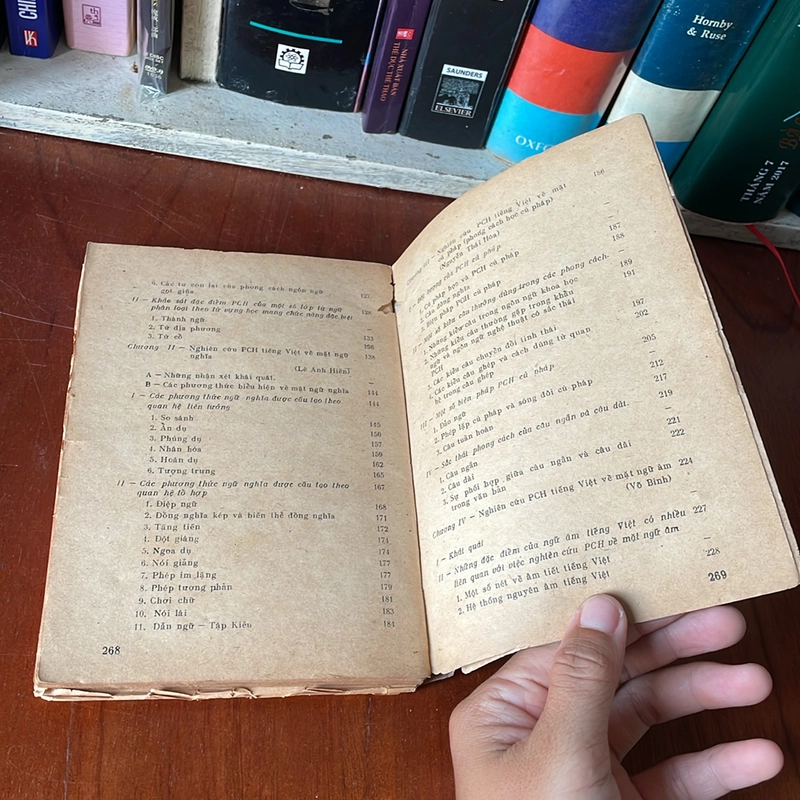 CHI
NHÀ XUẤT BẢN
THỂ DỤC THỂ THAO
SAUNDERS
ELSEVIER
OXFO
Hornby
& Ruse
THÁNG 7
NĂM 2017
6. Các từ còn lại của phong cách ngôn ngữ
gọt giũa 127
II – Khảo sát đặc điểm PCH của một số lớp từ ngữ
phân loại theo từ vựng học mang chức năng đặc biệt 128
1. Thành ngữ –
2. Từ địa phương 133
3. Từ cổ 136
Chương II – Nghiên cứu PCH tiếng Việt về mặt ngữ
nghĩa 138
(Lê Anh Hiền)
A – Những nhận xét khái quát. –
B – Các phương thức biểu hiện về mặt ngữ nghĩa 144
I – Các phương thức ngữ nghĩa được cấu tạo theo
quan hệ liên tưởng 144
1. So sánh 145
2. Ẩn dụ 156
3. Phúng dụ 157
4. Nhân hóa 159
5. Hoán dụ 162
6. Tượng trưng 165
II – Các phương thức ngữ nghĩa được cấu tạo theo
quan hệ tổ hợp 167
1. Điệp ngữ 168
2. Đồng nghĩa kép và biến thể đồng nghĩa 171
3. Tăng tiến 172
4. Đột giáng 174
5. Ngoa dụ 174
6. Nói giảng 177
7. Phép im lặng 177
8. Phép tương phản 179
9. Chơi chữ 181
10. Nói lái 183
11. Dẫn ngữ – Tập Kiều 184
268
Chương III – Nghiên cứu PCH tiếng Việt về mặt 186
cú pháp (phong cách học cú pháp)
(Nguyễn Thái Hòa)
I – Đối tượng của PCH cú pháp 187
1. Cú pháp học và PCH cú pháp 188
2. Câu đồng nghĩa
3. Biện pháp PCH cú pháp 189
II – Một số kiểu câu thường dùng trong các phong cách. 191
1. Những kiểu câu trong ngôn ngữ khoa học
2. Những kiểu câu thường gặp trong khẩu
ngữ và ngôn ngữ nghệ thuật có sắc thái
PCH 197
3. Các kiểu câu chuyển đổi tình thái 202
4. Các kiểu câu ghép và cách dùng từ quan
hệ trong câu ghép 205
III – Một số biện pháp PCH cú pháp
1. Đảo ngữ 212
2. Phép lặp cú pháp và sóng đôi cú pháp 217
3. Câu tuần hoàn 219
IV – Sắc thái phong cách của câu ngắn và câu dài. 221
1. Câu ngắn 222
2. Câu dài
3. Sự phối hợp giữa câu ngắn và câu dài
trong văn bản
Chương IV – Nghiên cứu PCH tiếng Việt về mặt ngữ âm 224
(Võ Bình)
I – Khái quát
II – Những đặc điểm của ngữ âm tiếng Việt có nhiều 227
liên quan với việc nghiên cứu PCH về mặt ngữ âm.
1. Một số nét về âm tiết tiếng Việt 228
2. Hệ thống nguyên âm tiếng Việt
269